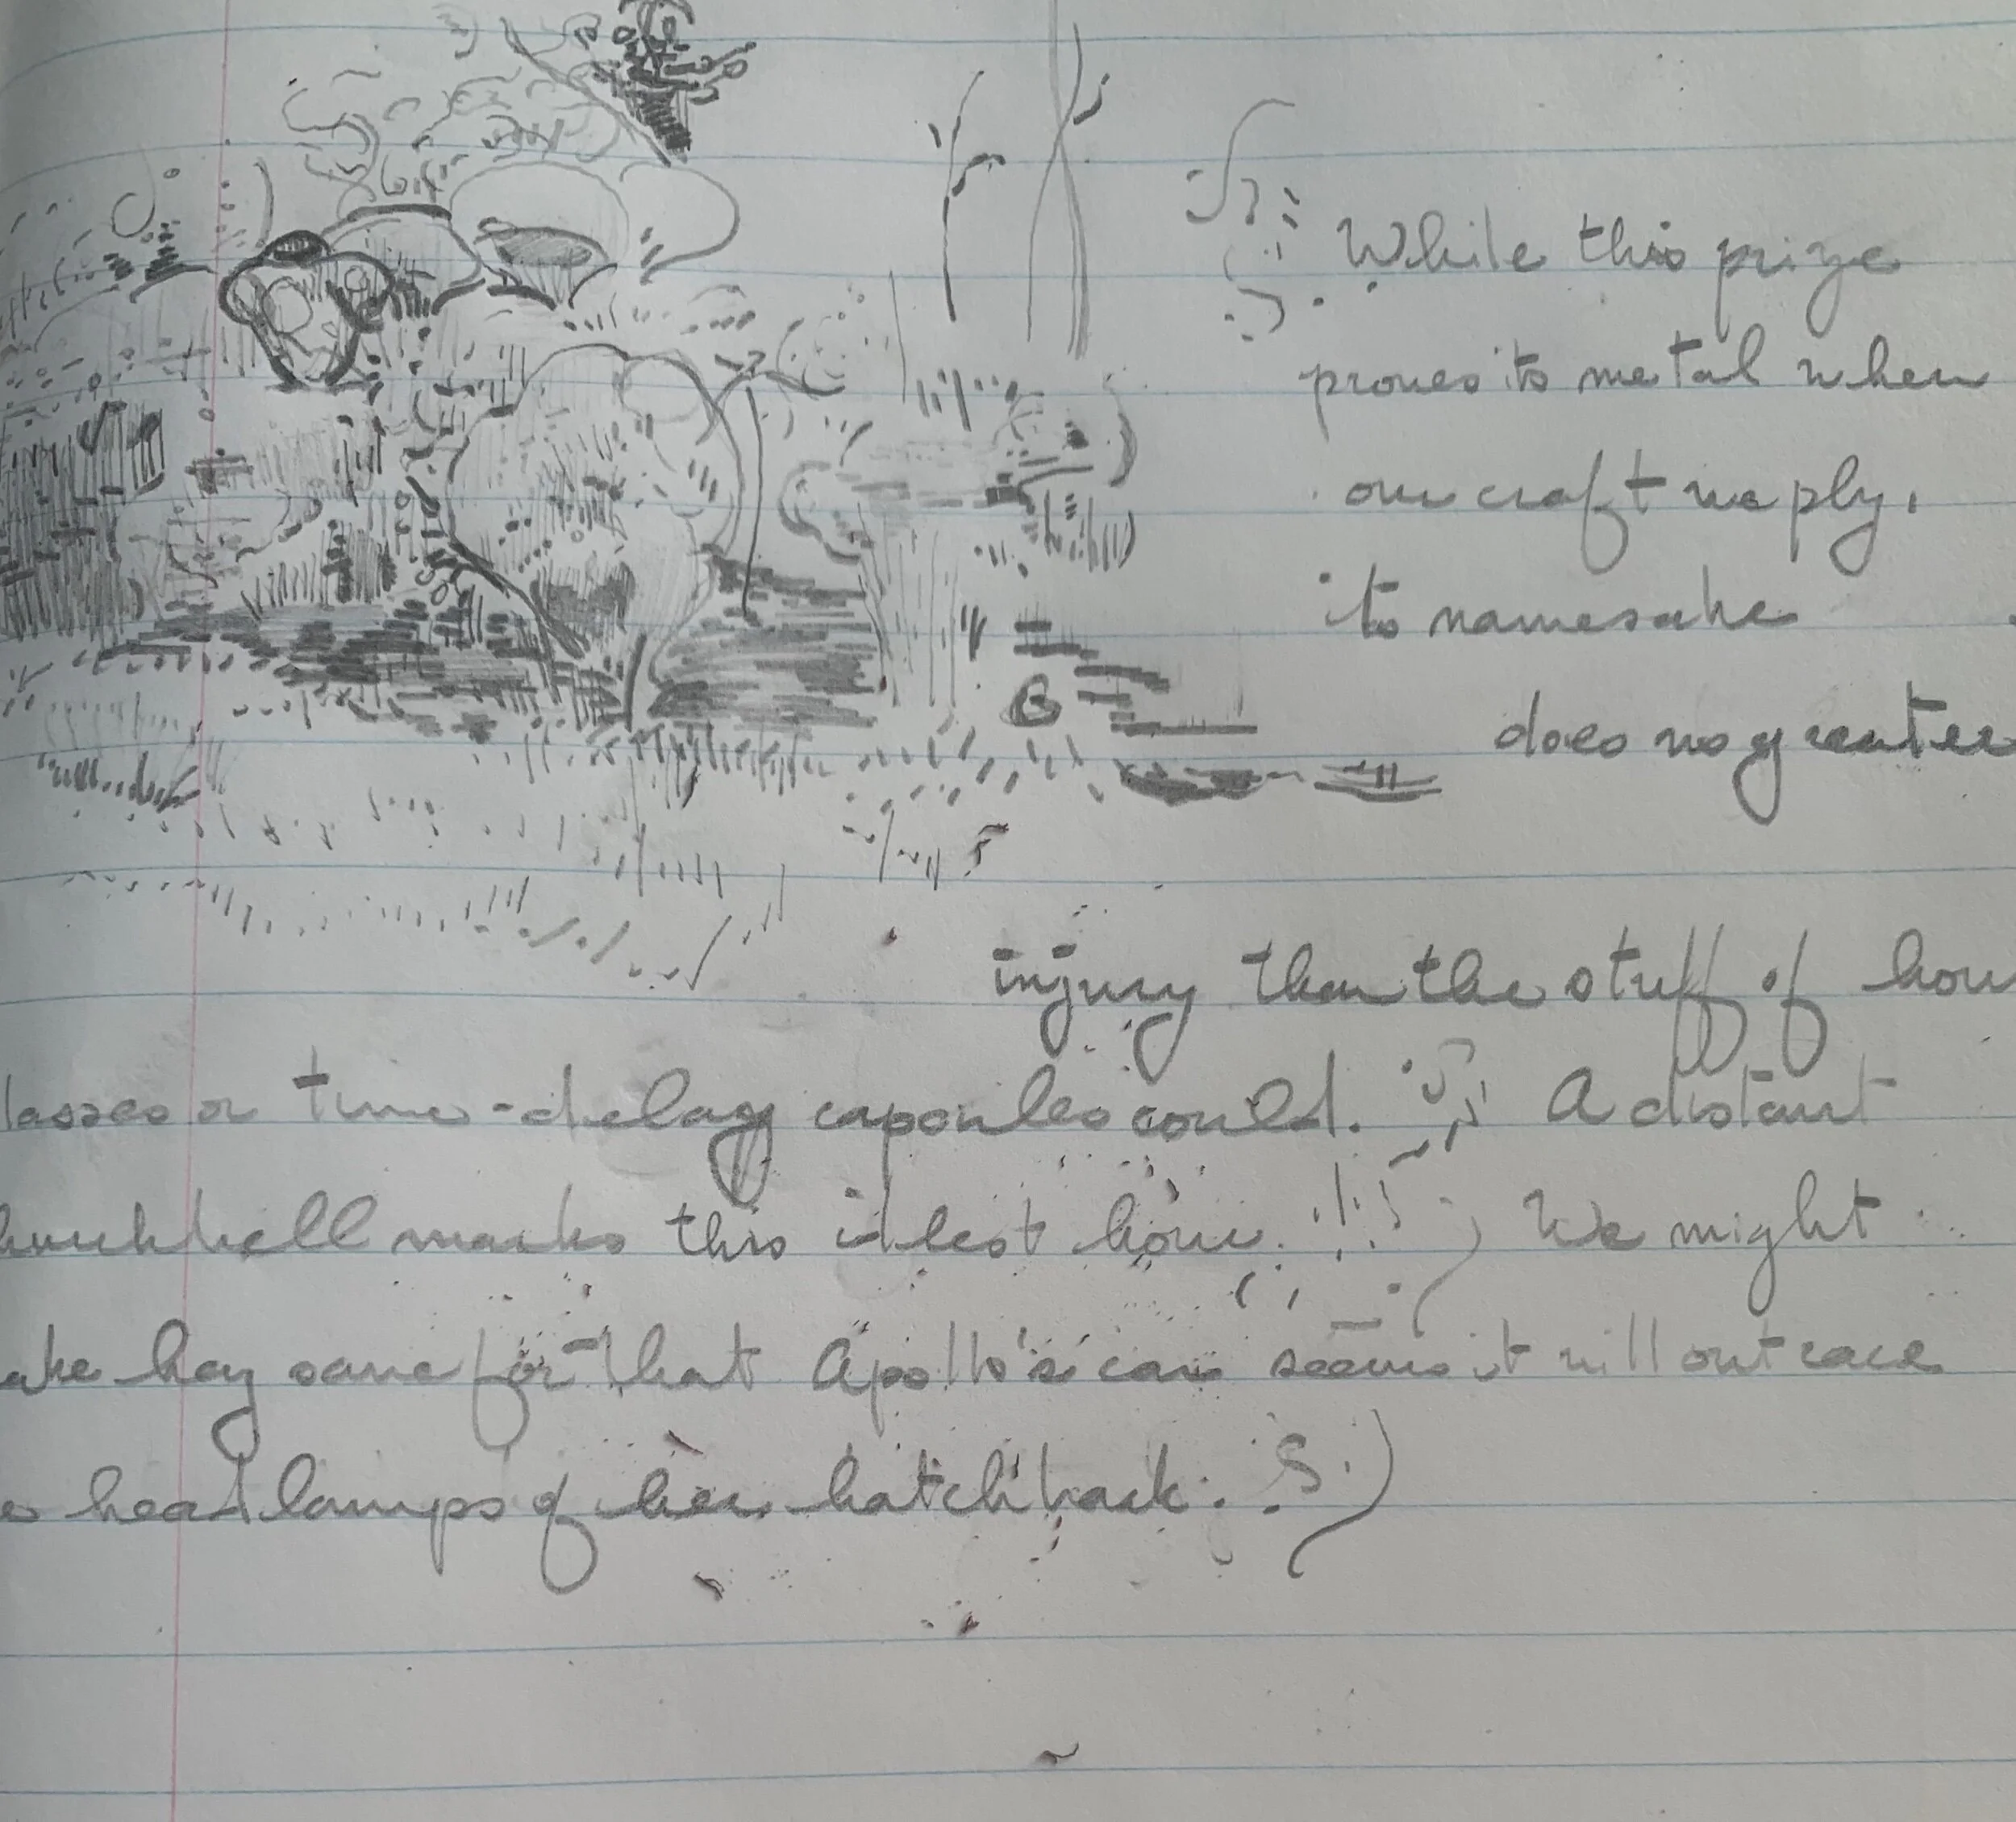 While this prize
proves its metal when
our craft we ply,
its namesake
does no greater
injury than the stuff of hou
lasses or time-delay capsules could. A distant
hurchbell marks this idlest hour. We might
ake hay save for that Apollo's car seems it will outrace
e headlamps of her hatchback.